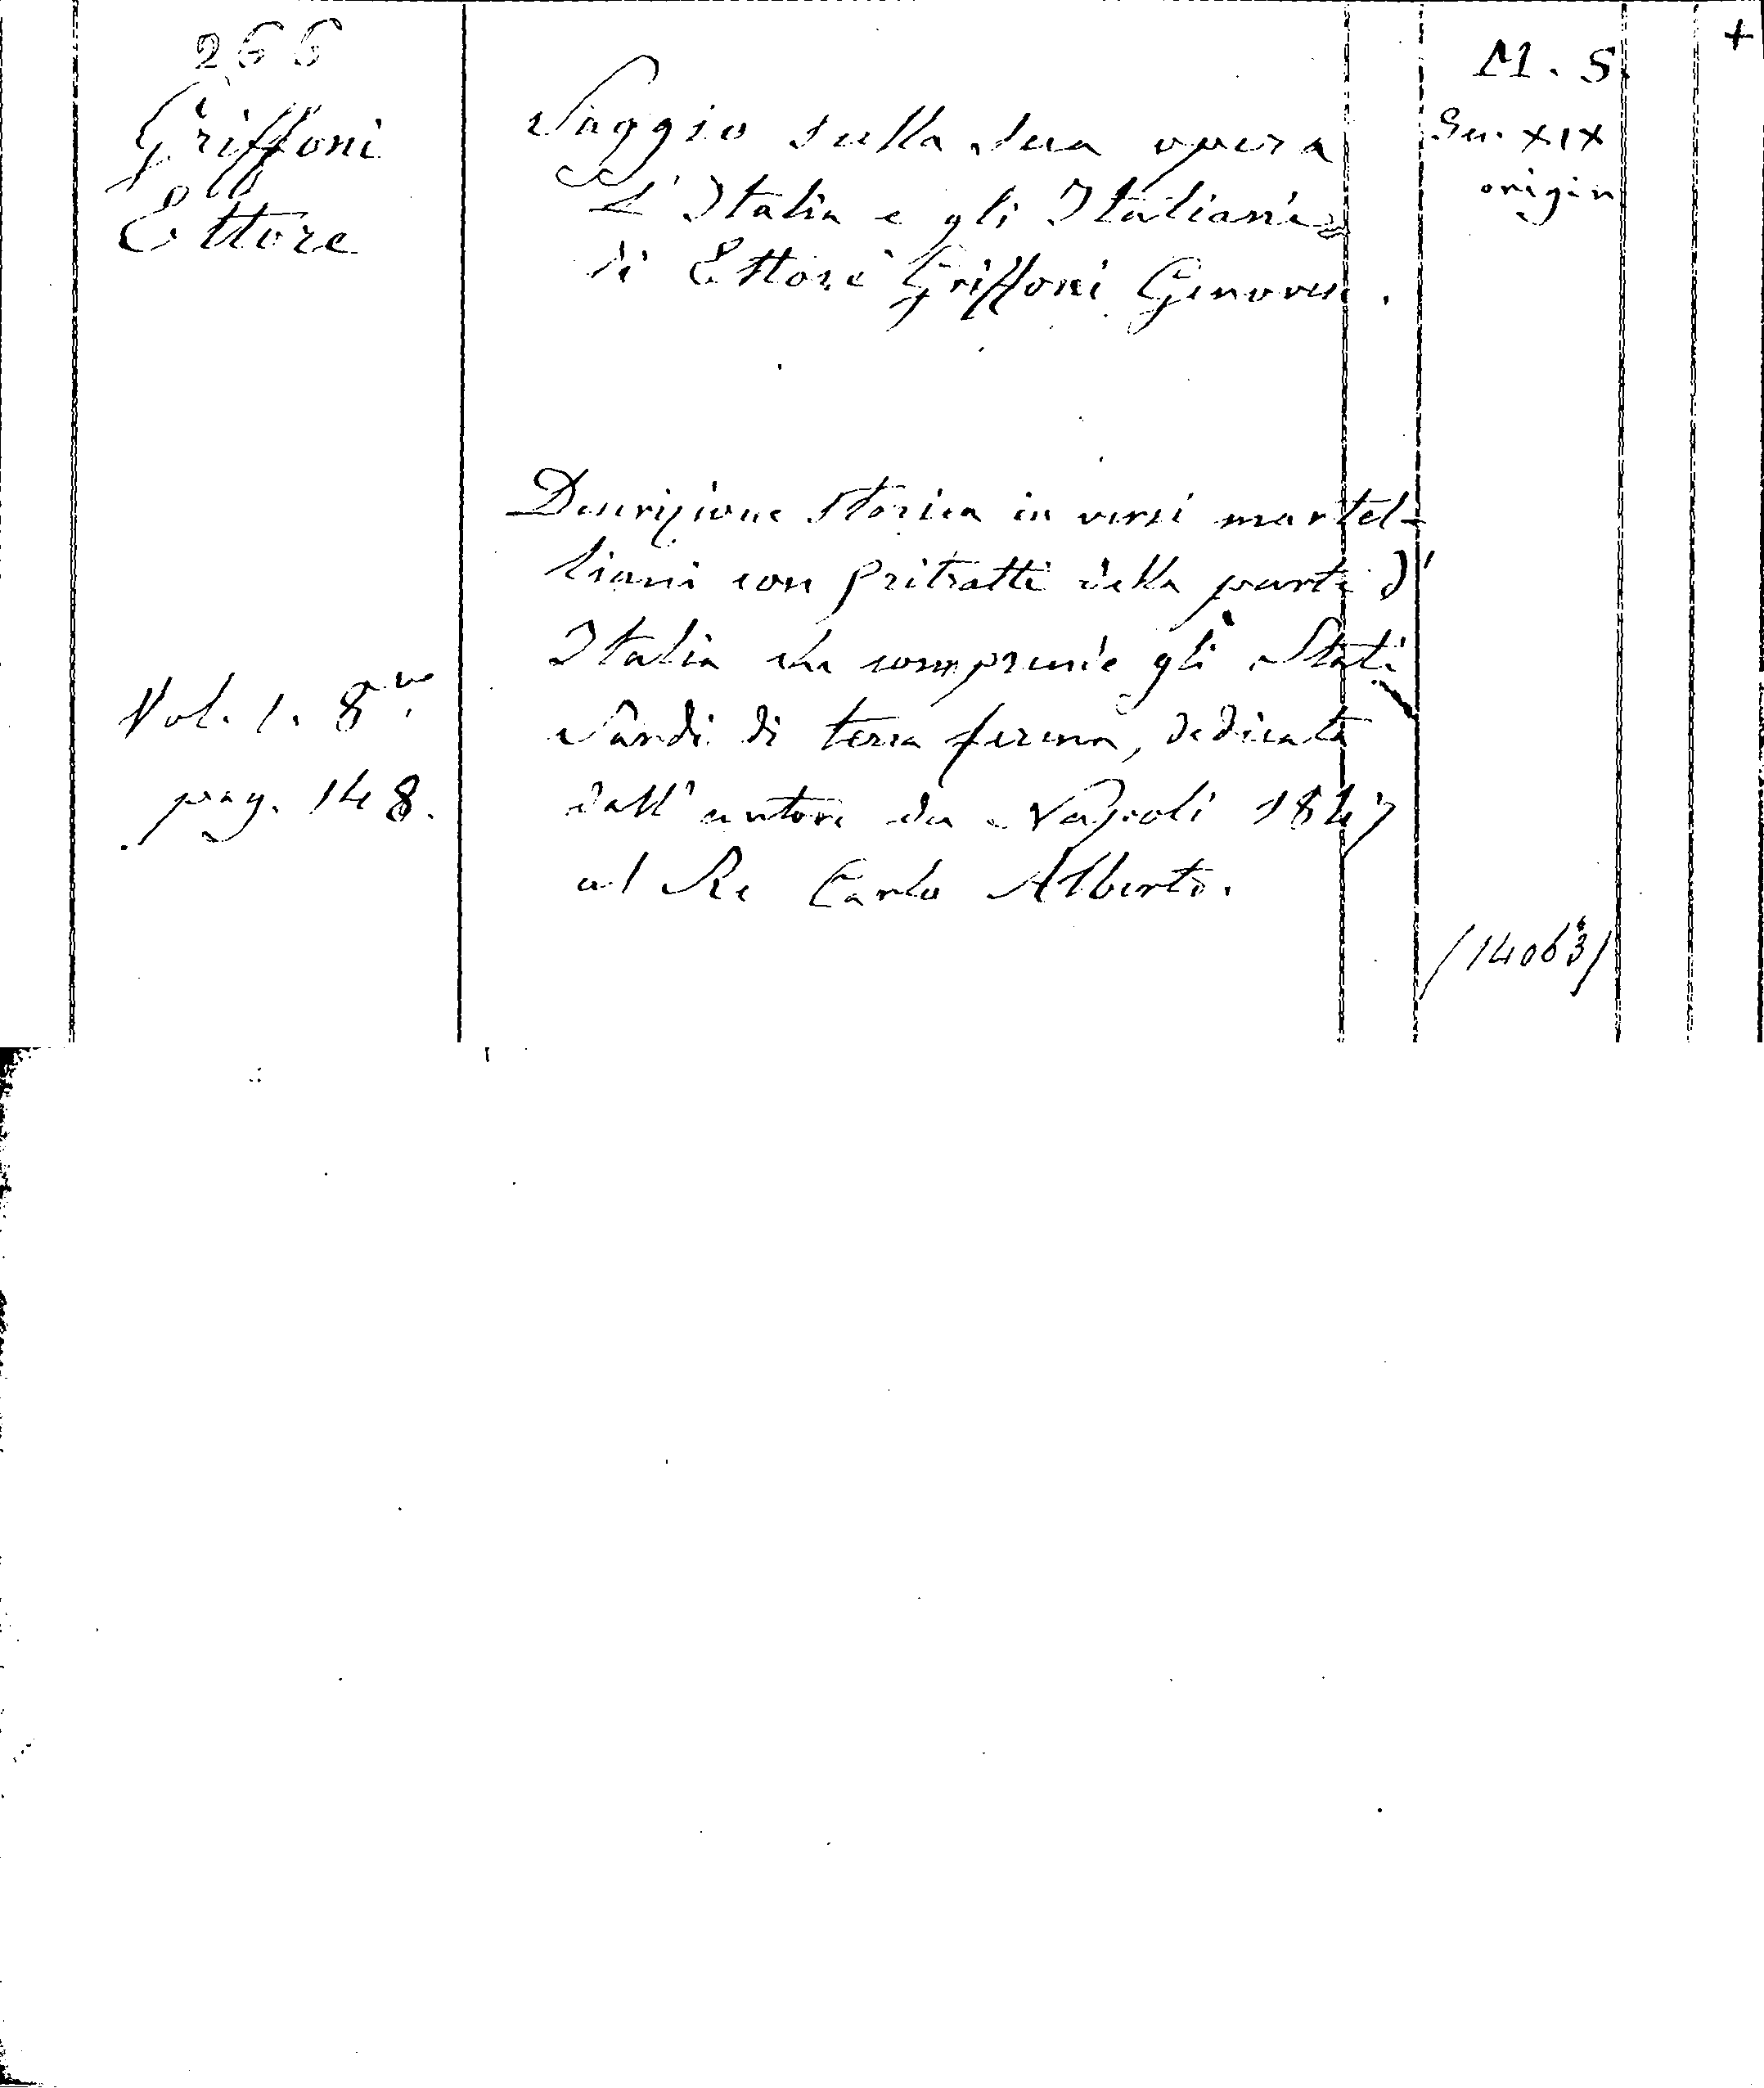 266
Griffoni
Ettore
Saggio sulla sua opera
L'Italia e gli Italiani
di Ettore Griffoni Genovese.
M. S.
Sec. XIX
origin
+
Descrizione storica in versi martel-
liani con ritratti della parte d'
Italia che comprende gli Stati
Sardi di terra ferma, dedicata
dall'autore da Napoli 1847
al Re Carlo Alberto.
Vol. 1. 8vo.
pag. 148.
(14063)